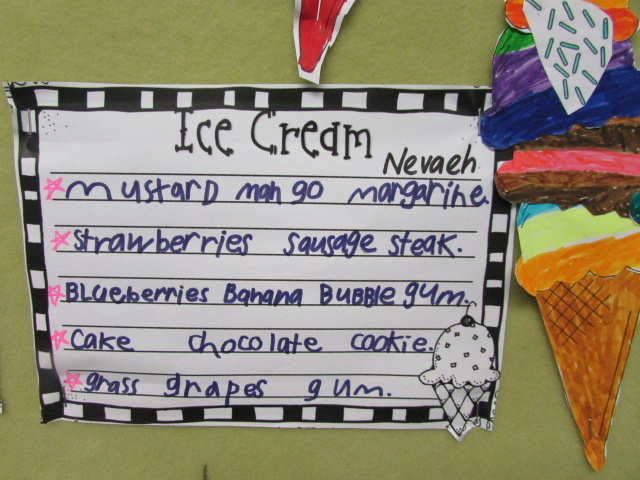 Ice Cream
Nevaeh
mustard mango margarine.
Strawberries sausage steak.
Blueberries Banana Bubble gum.
Cake chocolate cookie.
grass grapes gum.